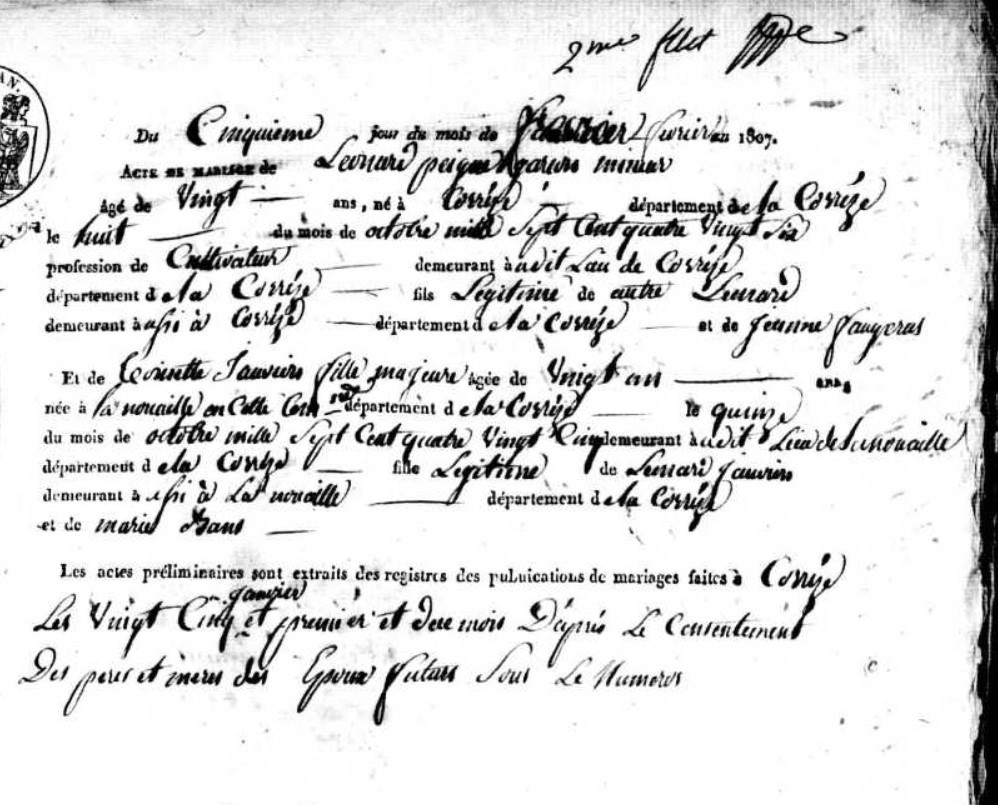 2me
AN.
Du Cinquieme jour du mois de fevrier an 1807.
ACTE DE MARIAGE de Leonard garcon mineur
Agé de Vingt ans, né à Corréze département de la Corréze
le huit du mois de octobre mille Sept Cent quatre Vingt Six
profession de Cultivateur demeurant à udit Lieu de Corréze
département d ela Corréze fils Legitime de autre Leonard
demeurant à ussi à Corréze département d ela Corréze et de jeanne faugeras
Et de fille majeure agée de Vingt an ans,
née à la nouaille en Cette Com département d ela Corréze le quinze
du mois de octobre mille Sept Cent quatre Vingt Cinq demeurant à udit Lieu de Lanouaille
département d ela Corréze fille Legitime de Leonard
demeurant à ussi à La nouaille département d ela Corréze
et de marie
Les actes préliminaires sont extraits des registres des publications de mariages faites à Corréze
janvier
Les Vingt Cinq et premier et du mois D'áprés Le Consentement
Des peres et meres des Epoux futurs Sous Le Numeros